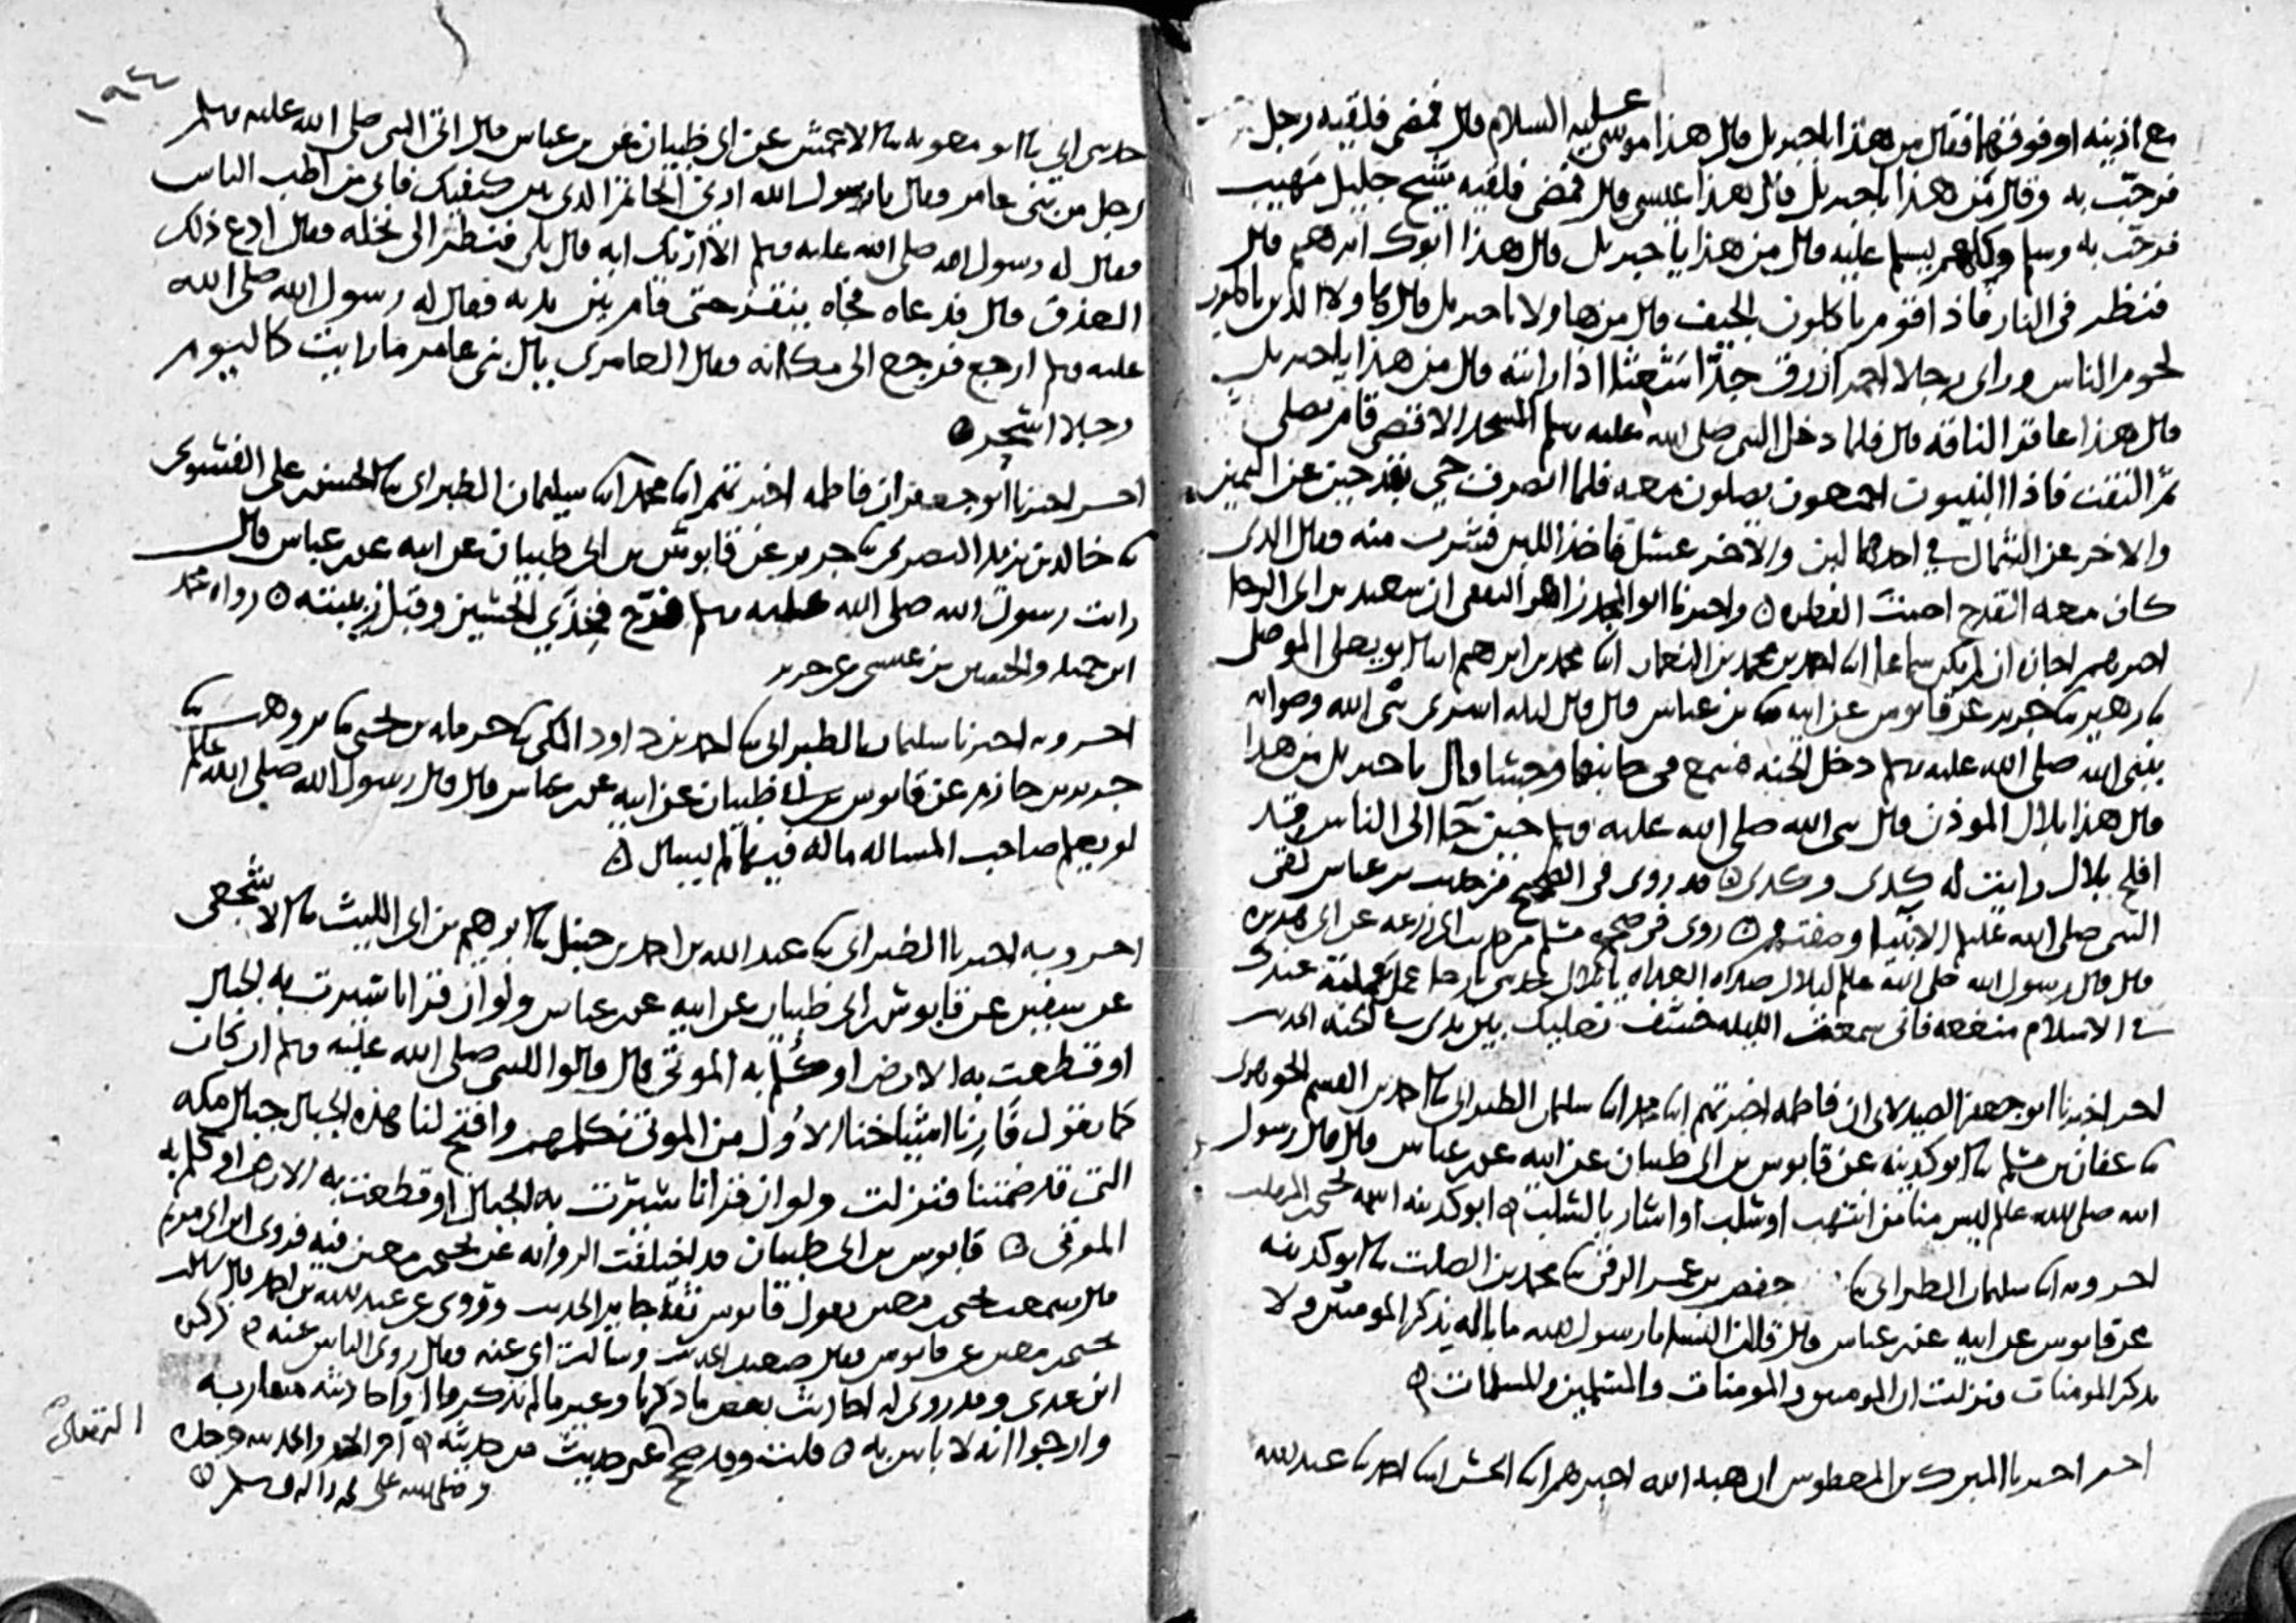 مع اذنيه او فوقهما فقال من هذا يا جبريل قال هذا موسى عليه السلام قال فمضى فلقيه رجل
فرحب به وقال من هذا يا جبريل قال هذا عيسى قال فمضى فلقيه شيخ جليل مهيب
فرحب به وسلم وكلهم يسلم عليه قال من هذا يا جبريل قال هذا ابوك ابرهيم قال
فنظر في النار فاذا قوم ياكلون الجيف قال من هاولا يا جبريل قال هاولا الذين ياكلون
لحوم الناس وراى رجلا احمر ازرق جدا شعثا اذا رايته قال من هذا يا جبريل
قال هذا عاقر الناقه قال فلما دخل النبي صلى الله عليه وسلم المسجد الاقصى قام يصلي
ثم التفت فاذا النبيون اجمعون يصلون معه فلما انصرف جي بقدحين عن اليمين
والاخر عن الشمال في احدهما لبن والاخر عسل فاخذ اللبن فشرب منه وقال الذي
كان معه القدح اصبت الفطره واخبرنا ابو المجد زاهر الثقفي ان سعيد بن ابي الرجا
اخبرهم اجازه ان لم يكن سماعا ابنا احمد بن محمد بن النعمان ابنا محمد بن ابرهيم ابنا ابو يعلى الموصلي
نا زهير نا جرير عن قابوس عن ابيه عن بن عباس قال قال ليله اسري بنبي الله
نبي الله صلى الله عليه وسلم دخل الجنه فسمع في جانبها وجسا قال يا جبريل من هذا
قال هذا بلال الموذن قال نبي الله صلى الله عليه وسلم حين جا الى الناس قد
افلح بلال رايت له كذى وكذى قد روي في الصحيح من حديث بن عباس لقي
النبي صلى الله عليه وسلم الانبيا وصفتهم روى في صحيح مسلم من حديث ابي زرعه عن ابي هريره
قال قال رسول الله صلى الله عليه وسلم لبلال صلاه الغداه يا بلال حدثني بارجا عمل عملته عندك
في الاسلام منفعه فاني سمعت الليله خشف نعليك بين يدي في الجنه الحديث
اخبرنا ابو جعفر الصيدلاني ان فاطمه اخبرتهم ابنا محمد ابنا سليمان الطبراني نا احمد بن القسم الجوهري
نا عفان بن مسلم نا ابو كدينه عن قابوس بن ابي ظبيان عن ابيه عن بن عباس قال قال رسول
الله صلى الله عليه وسلم ليس منا من انتهب او سلب او اشار بالسلب ابو كدينه اسمه يحيى بن المهلب
اخبرنا وبه ابنا سليمان الطبراني نا جعفر بن عمر الرقي نا محمد بن الصلت نا ابو كدينه
عن قابوس عن ابيه عن بن عباس قال قالت النسا يا رسول الله ما باله يذكر المومنين ولا
يذكر المومنات فنزلت ان المومنين والمومنات والمسلمين والمسلمات
اخبرنا المبرك بن المعطوش ان هبه الله اخبرهم ابنا الحسن ابنا احمد نا عبد الله
١٩٤
حدثني ابي نا ابو معويه نا الاعمش عن ابي ظبيان عن بن عباس قال اتى النبي صلى الله عليه وسلم
رجل من بني عامر فقال يا رسول الله ارني الخاتم الذي بين كتفيك فاني من اطب الناس
فقال له رسول الله صلى الله عليه وسلم الا اريك ايه قال بلى فنظر الى نخله فقال ادع ذلك
العذق قال فدعاه فجاه ينقز حتى قام بين يديه فقال له رسول الله صلى الله
عليه وسلم ارجع فرجع الى مكانه فقال العامري يال بني عامر ما رايت كاليوم
رجلا اسحر
اخبرنا ابو جعفر ان فاطمه اخبرتهم ابنا محمد ابنا سليمان الطبراني نا الحسن بن علي الفسوي
نا خالد بن يزيد نا جرير عن قابوس بن ابي ظبيان عن ابيه عن بن عباس قال
رايت رسول الله صلى الله عليه وسلم فرج فخذي الحسين وقبل زبيبته رواه محمد
ابن حميد والحسن بن عيسى عن جرير
اخبرنا وبه اخبرنا سليمان الطبراني نا احمد بن داود المكي نا حرمله بن يحيى نا بن وهب نا
جرير بن حازم عن قابوس بن ابي ظبيان عن ابيه عن بن عباس قال قال رسول الله صلى الله عليه وسلم
لو يعلم صاحب المساله ما له فيها لم يسال
اخبرنا وبه اخبرنا الطبراني نا عبد الله بن احمد بن حنبل نا ابرهيم بن ابي الليث نا الاشجعي
عن سفين عن قابوس بن ابي ظبيان عن ابيه عن بن عباس ولو ان قرانا سيرت به الجبال
او قطعت به الارض او كلم به الموتى قال قالوا للنبي صلى الله عليه وسلم ان كان
كما تقول فارنا اشياخنا الاول من الموتى نكلمهم وافتح لنا هذه الجبال جبال مكه
التي قد ضمتنا فنزلت ولو ان قرانا سيرت به الجبال او قطعت به الارض او كلم به
الموتى قابوس بن ابي ظبيان قد اختلفت الروايه عن يحيى بن معين فيه فروى ابن ابي مريم
قال سمعت يحيى بن معين يقول قابوس ثقه جايز الحديث وروي عن عبد الله بن احمد قال سالت
يحيى بن معين عن قابوس فقال ضعيف الحديث وسالت ابي عنه فقال روى الناس عنه ذكره
ابن عدي وقد روى له احاديث بعض ما ذكرنا وغير ما لم نذكر قال واحاديثه متقاربه
وارجوا انه لا باس به قلت وقد صحح الترمذي غير حديث من حديثه اخر الجزو والحمد لله وحده
وصلى الله على محمد واله وسلم